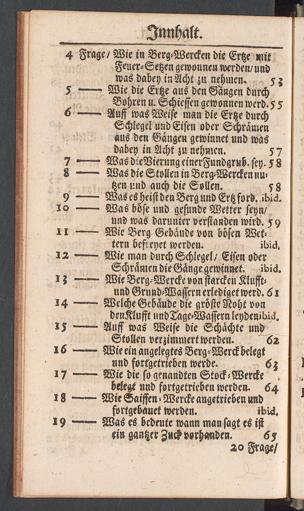 Innhalt.
4 Frage/ Wie in Berg-Wercken die Ertze mit
Feuer-Setzen gewonnen werden/ und
was dabey in Acht zu nehmen. 53
5 — Wie die Ertze aus den Gängen durch
Bohren u. Schiessen gewonnen werd. 55
6 — Auff was Weise man die Ertze durch
Schlegel und Eisen oder Schrämen
aus den Gängen gewinnet und was
dabey in Acht zu nehmen. 57
7 — Was die Vierung einer Fundgrub. sey. 58
8 — Was die Stollen in Berg-Wercken nu-
tzen und auch die Sollen. 58
9 — Was es heist den Berg und Ertz ford. ibid.
10 — Was böse und gesunde Wetter seyn/
und was darunter verstanden wird. 59
11 — Wie Berg-Gebäude von bösen Wet-
tern befreyet werden. ibid.
12 — Wie man durch Schlegel/ Eisen oder
Schrämen die Gänge gewinnet. ibid.
13 — Wie Berg-Wercke von starcken Klufft-
und Grund-Wassern erlediget werd. 61
14 — Welche Gebäude die gröste Noht von
den Klufft und Tage-Wassern leyden ibid.
15 — Auff was Weise die Schächte und
Stollen verzimmert werden. 62
16 — Wie ein angelegtes Berg-Werck belegt
und fortgetrieben werde. 63
17 — Wie die so genandten Stock-Wercke
belegt und fortgetrieben werden. 64
18 — Wie Saiffen-Wercke angetrieben und
fortgebauet werden. ibid.
19 — Was es bedeute wann man sagt es ist
ein gantzer Zuck vorhanden. 65
20 Frage/